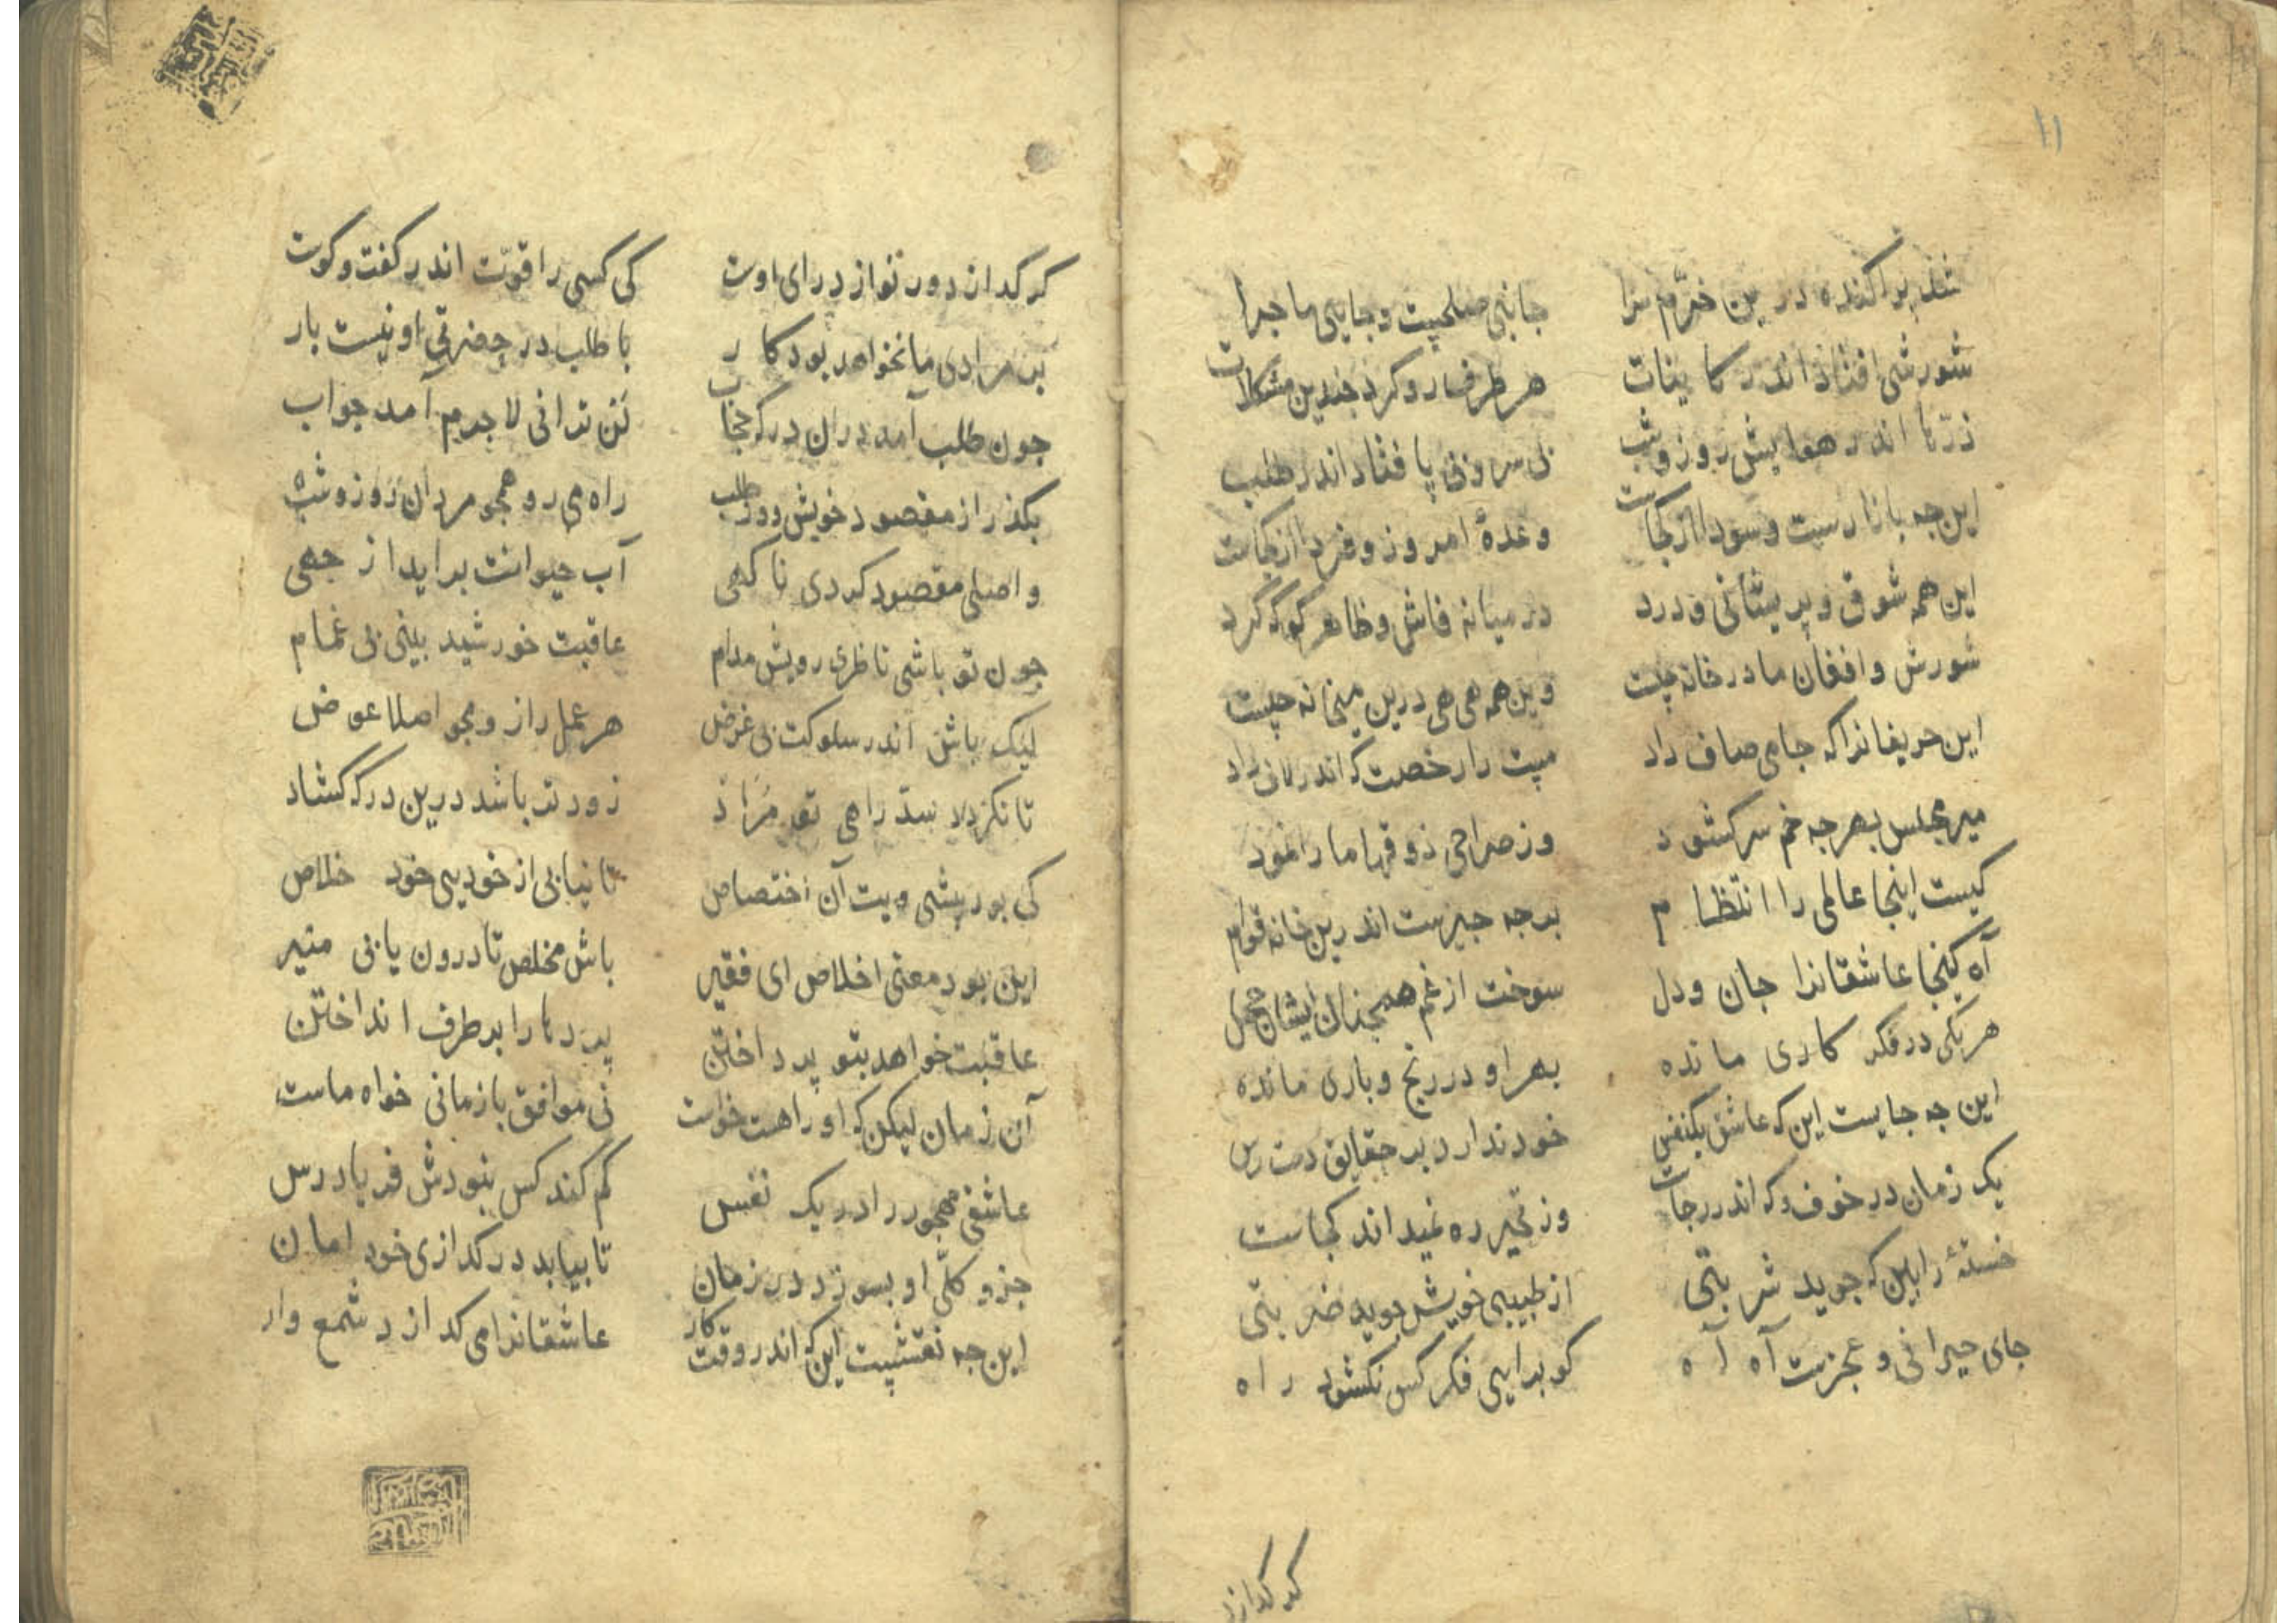 ۱۱
شد پراکنده درین خرّم سرا جانبی صلحیت و جایی ماجرا
شورشی افتاد اندر کاینات هر طرف رو کرد چندین مشکلات
ذرّها اندر هوایش روز وشب نی سر و نی پا فتاد اندر طلب
این چه بازارست وسودا از کجاست وعدهٔ امروز و فردا از کجاست
این همه شوق و پریشانی و درد در میانه فاش و ظاهر کو که کرد
شورش وافغان ما در خانه چیست وین همه هی هی درین میخانه چیست
این حریفانرا که جامی صاف داد مست را رخصت که اندر لاف داد
میر مجلس بهر چه خم سر کشود وز صراحی ذوقها ما را نمود
کیست اینجا عالمی را انتظام بر چه چیزست اندرین خانه قوام
آه کینجا عاشقانرا جان ودل سوخت از غم همچنان ایشان خجل
هر یکی در فکر کاری مانده بهر او در رنج و باری مانده
این چه جایست این که عاشق یکنفس خود ندارد بر حقایق دست رس
یک زمان در خوف و که اندر رجاست وز تحیر ره نمیداند کجاست
خستهٔ را بین که جوید شربتی از طبیبی خویش جوید ضربتی
جای حیرانی و عجزست آه آه کو برایی فکر کس نکشود راه
کر کدازد
کر کدازد ور نوازد رای اوست کی کسی را قوّت اندر کفت وکوست
بر مرادی ما نخواهد بود کار با طلب در حضرتی او نیست بار
چون طلب آمد دران درکه حجاب لن ترانی لاجرم آمد جواب
بکذر از مقصود خویش ووز طلب راه می رو همچو مردان روز وشب
واصلی مقصود کردی ناکهی آب حیوانت براید از جهی
چون تو باشی ناظری رویش مدام عاقبت خورشید بینی بی غمام
لیک باش اندر سلوکت بی غرض هر عمل را زو مجو اصلا عوض
تا نکردد سدّ راهی تو مراد زودت باشد درین درکه کشاد
کی بود پیشی ویت آن اختصاص تا نیابی از خودیی خود خلاص
این بود معنی اخلاص ای فقیر باش مخلص تا درون یابی منیر
عاقبت خواهد بتو پرداختن پردها را بر طرف انداختن
آن زمان لیکن که او راهت خواست نی موافق با زمانی خواه ماست
عاشقی مهجور را در یک نفس کم کند کس نبودش فریادرس
جزو کلّی او بسوزد در زمان تا بیابد در کدازی خود امان
این چه نقشیست این که اندر وقت کار عاشقانرا می کدازد شمع وار